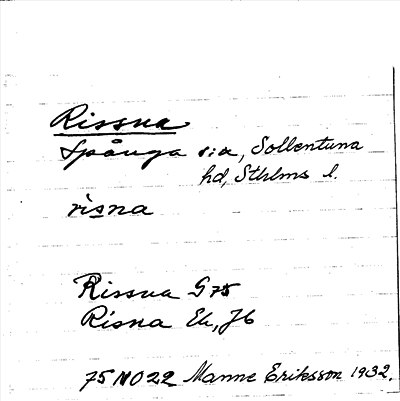 Rissna
Spånga s:n, Sollentuna
hd, Sthlms l.
risna
Rissna G 75
Risna Ek, Jb
75 NO 22 Manne Eriksson 1932.